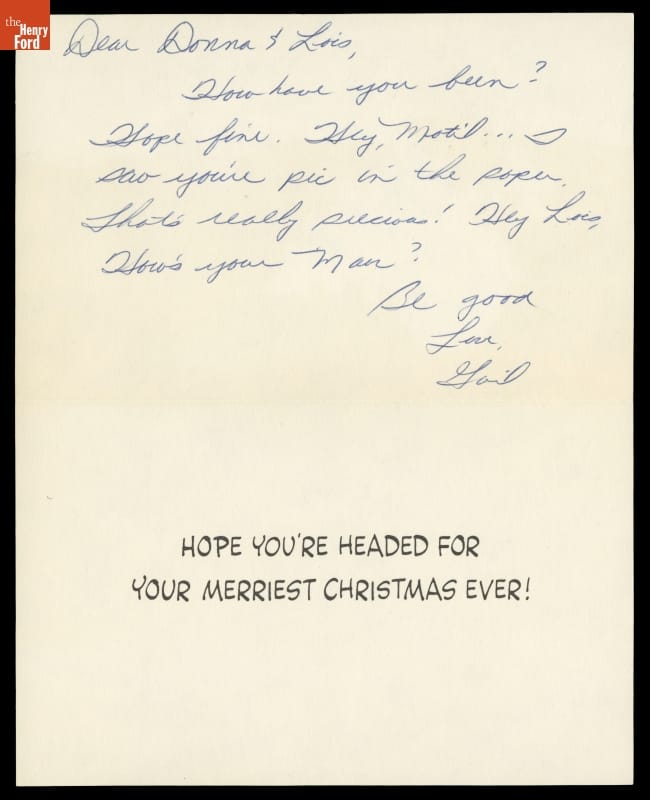 the
Henry
Ford
Dear Donna & Lois,
How have you been?
Hope fine. Hey, Motil... I
saw you're pic in the paper.
That's really precious! Hey Lois,
How's your Man?
Be good
Love,
Gail
HOPE YOU'RE HEADED FOR
YOUR MERRIEST CHRISTMAS EVER!